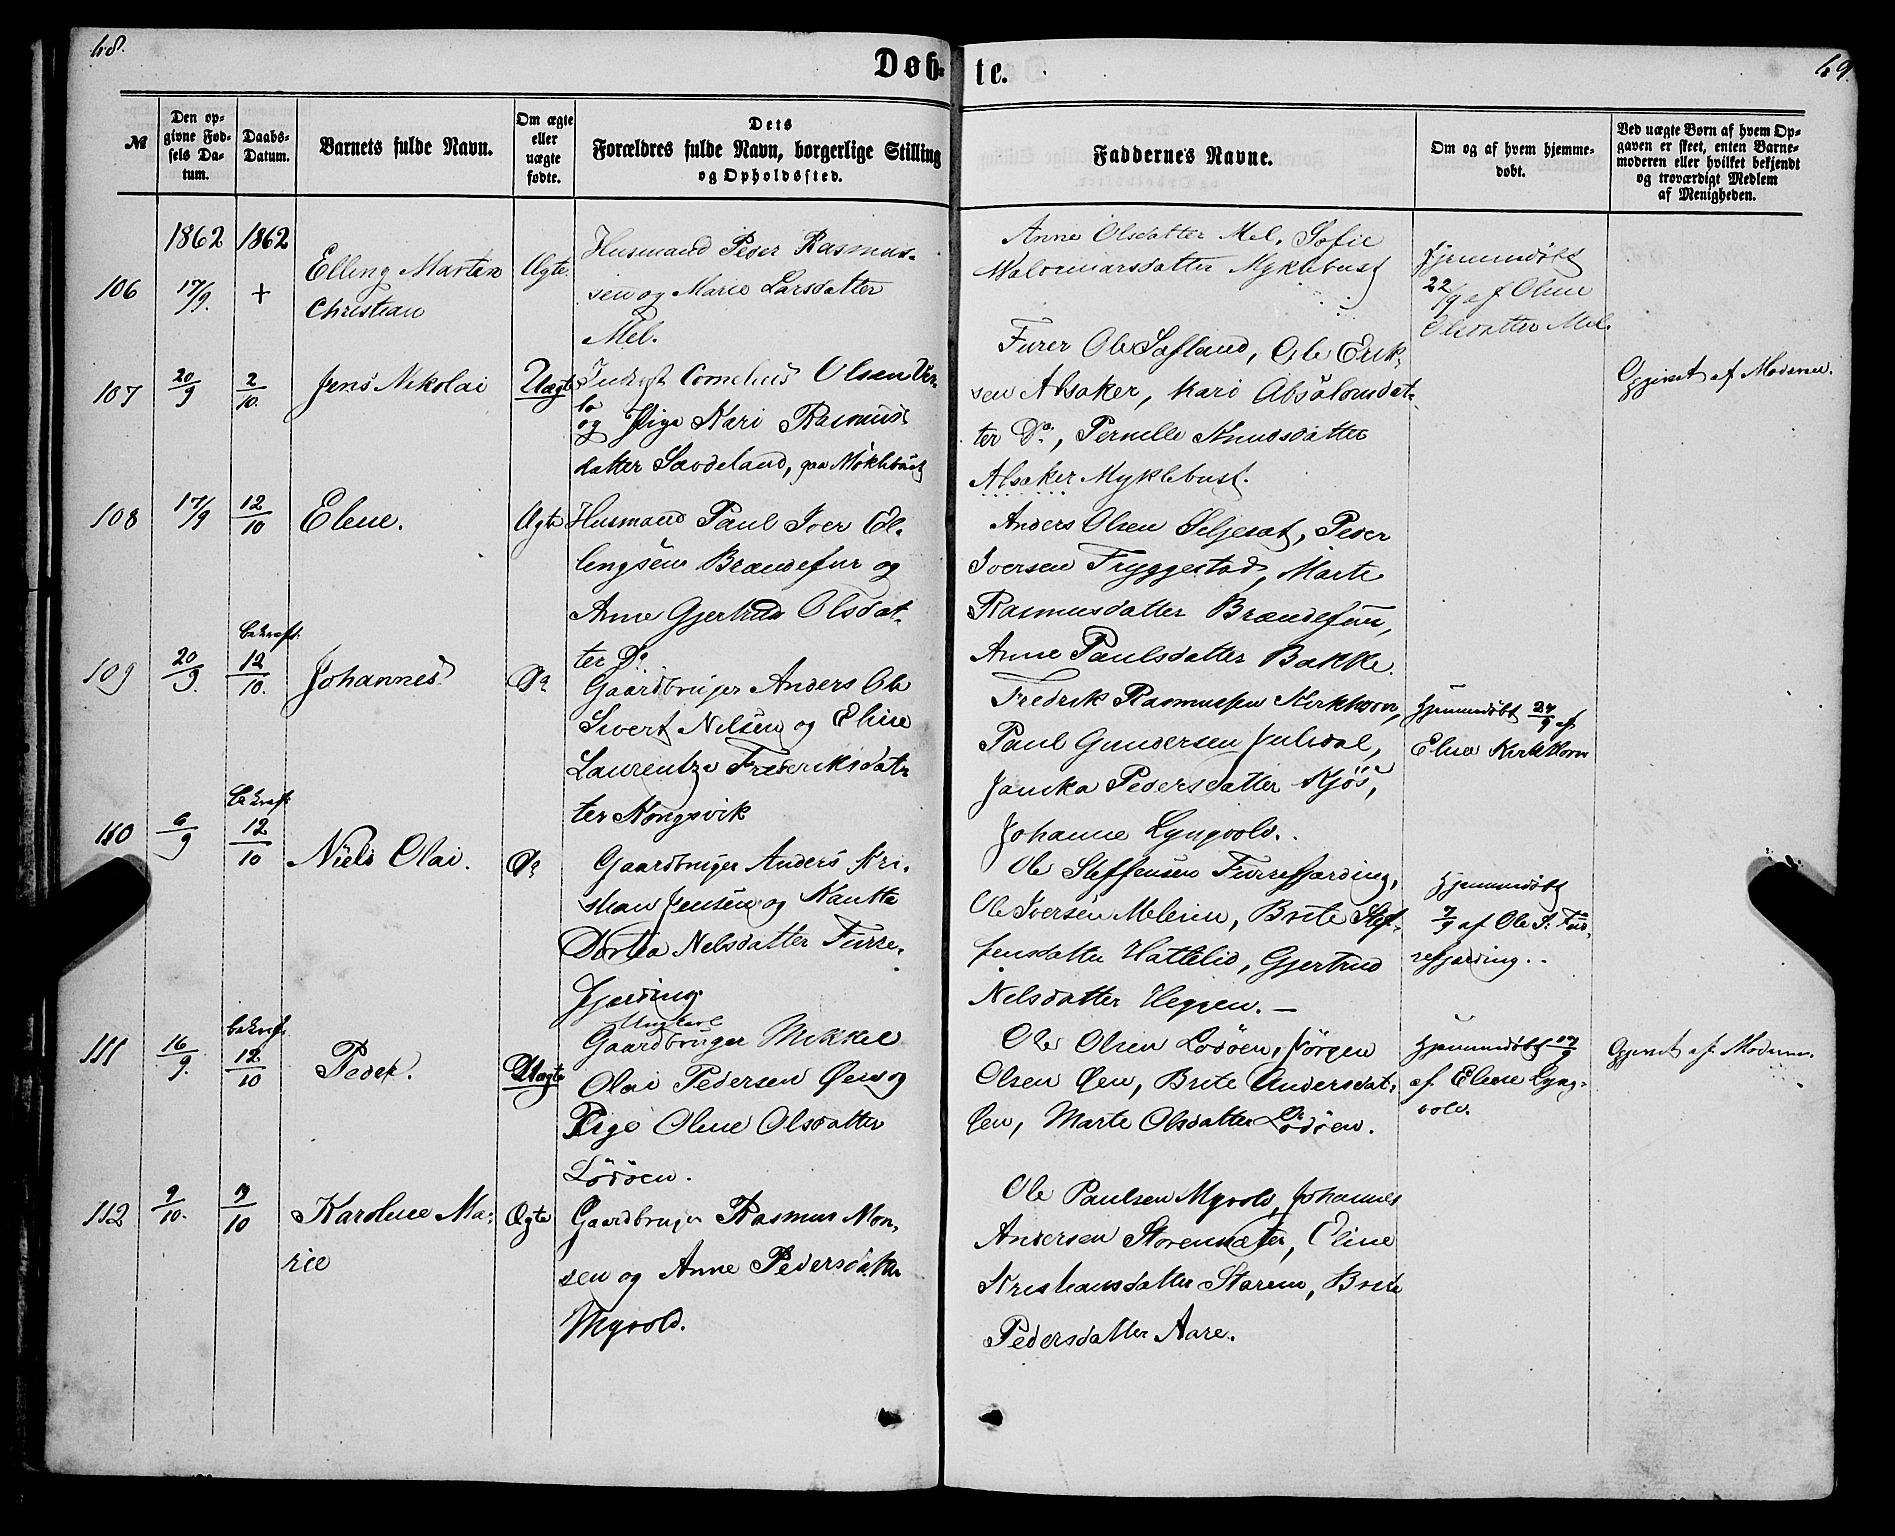 68.
Døb-
te.
69.
№
Den op-
givne Fød-
sels Da-
tum.
Daabs-
Datum.
Barnets fulde Navn.
Om ægte
eller
uægte
fødte.
Dets
Forældres fulde Navn, borgerlige Stilling
og Opholdssted.
Faddernes Navne.
Om og af hvem hjemme-
døbt.
Ved uægte Børn af hvem Op-
gaven er skeet, enten Barne-
moderen eller hvilket bekjendt
og troværdigt Medlem
af Menigheden.
1862 1862
106 17/9. + Elling Martin
Christian
Ægte
Husmand Peder Rasmus-
sen og Marie Larsdatter
Mel.
Anne Olsdatter Mel, Sofie
Waldemarsdatter Myklebust
Hjemmedøbt
22/9 af Oline
Olsdatter Mel.
107 20/9 2/10. Jens Nikolai
Uægte
Cornelius Olsen
og Pige Kari Rasmus-
datter Sævdeland, paa Møklebust
Furer Ole Sæfland, Ole Erik-
sen Alsaker, Kari Absalonsdat-
ter Do., Pernelle Knudsdatter
Alsaker Myklebust.
Opgivet af Moderen.
108 17/9 12/10 Elene.
Ægte
Husmand Paul Iver El-
lingsen Brændefur og
Anne Gjertrud Olsdat-
ter Do.
Anders Olsen Seljeset, Peder
Iversen Tryggestad, Marte
Rasmusdatter Brændefur,
Anne Paulsdatter Bakke.
109 20/9. bekræft. 12/10. Johannes
Do
Gaardbruger Anders Ole
Sivert Nilsen og Eline
Laurentze Frederiksdat-
ter Kongsvik
Fredrik Rasmussen Kirkhorn,
Paul Gundersen Juledal,
Janika Pedersdatter Kjös,
Johanne Lyngvold.
Hjemmedøbt 24/9 af
Eline Kirkhorn
110 6/9 bekræft. 12/10 Niels Olai.
Do
Gaardbruger Anders Kri-
stian Jensen og Nautte
Dortea Nelsdatter Furre-
fjærding
Ole Steffensen Furrefjærding,
Ole Iversen Meleim, Brite Stef-
fensdatter Hattelid, Gjertrud
Nelsdatter Heggen. —
Hjemmedøbt
7/9 af Ole S. Fur-
refjærding.
111 16/9. bekræft. 12/10 Peder.
Uægte
Ungkarl
Gaardbruger Mikkel
Olai Pedersen Øen og
Pige Oline Olsdatter
Lödöen.
Ole Olsen Lödöen, Jörgen
Olsen Øen, Brite Andersdat.
Øen, Marte Olsdatter Lödöen.
Hjemmedøbt 17/9
af Elene Lyng-
vold.
Opgivet af Moderen.
112 9/10. 19/10 Karoline Ma-
rie
Ægte
Gaardbruger Rasmus Mon-
sen og Anne Pedersdatter
Myrold.
Ole Paulsen Myrold, Johannes
Andersen Storensæter, Eline
Kristiansdatter Starem, Brite
Pedersdatter Aare.